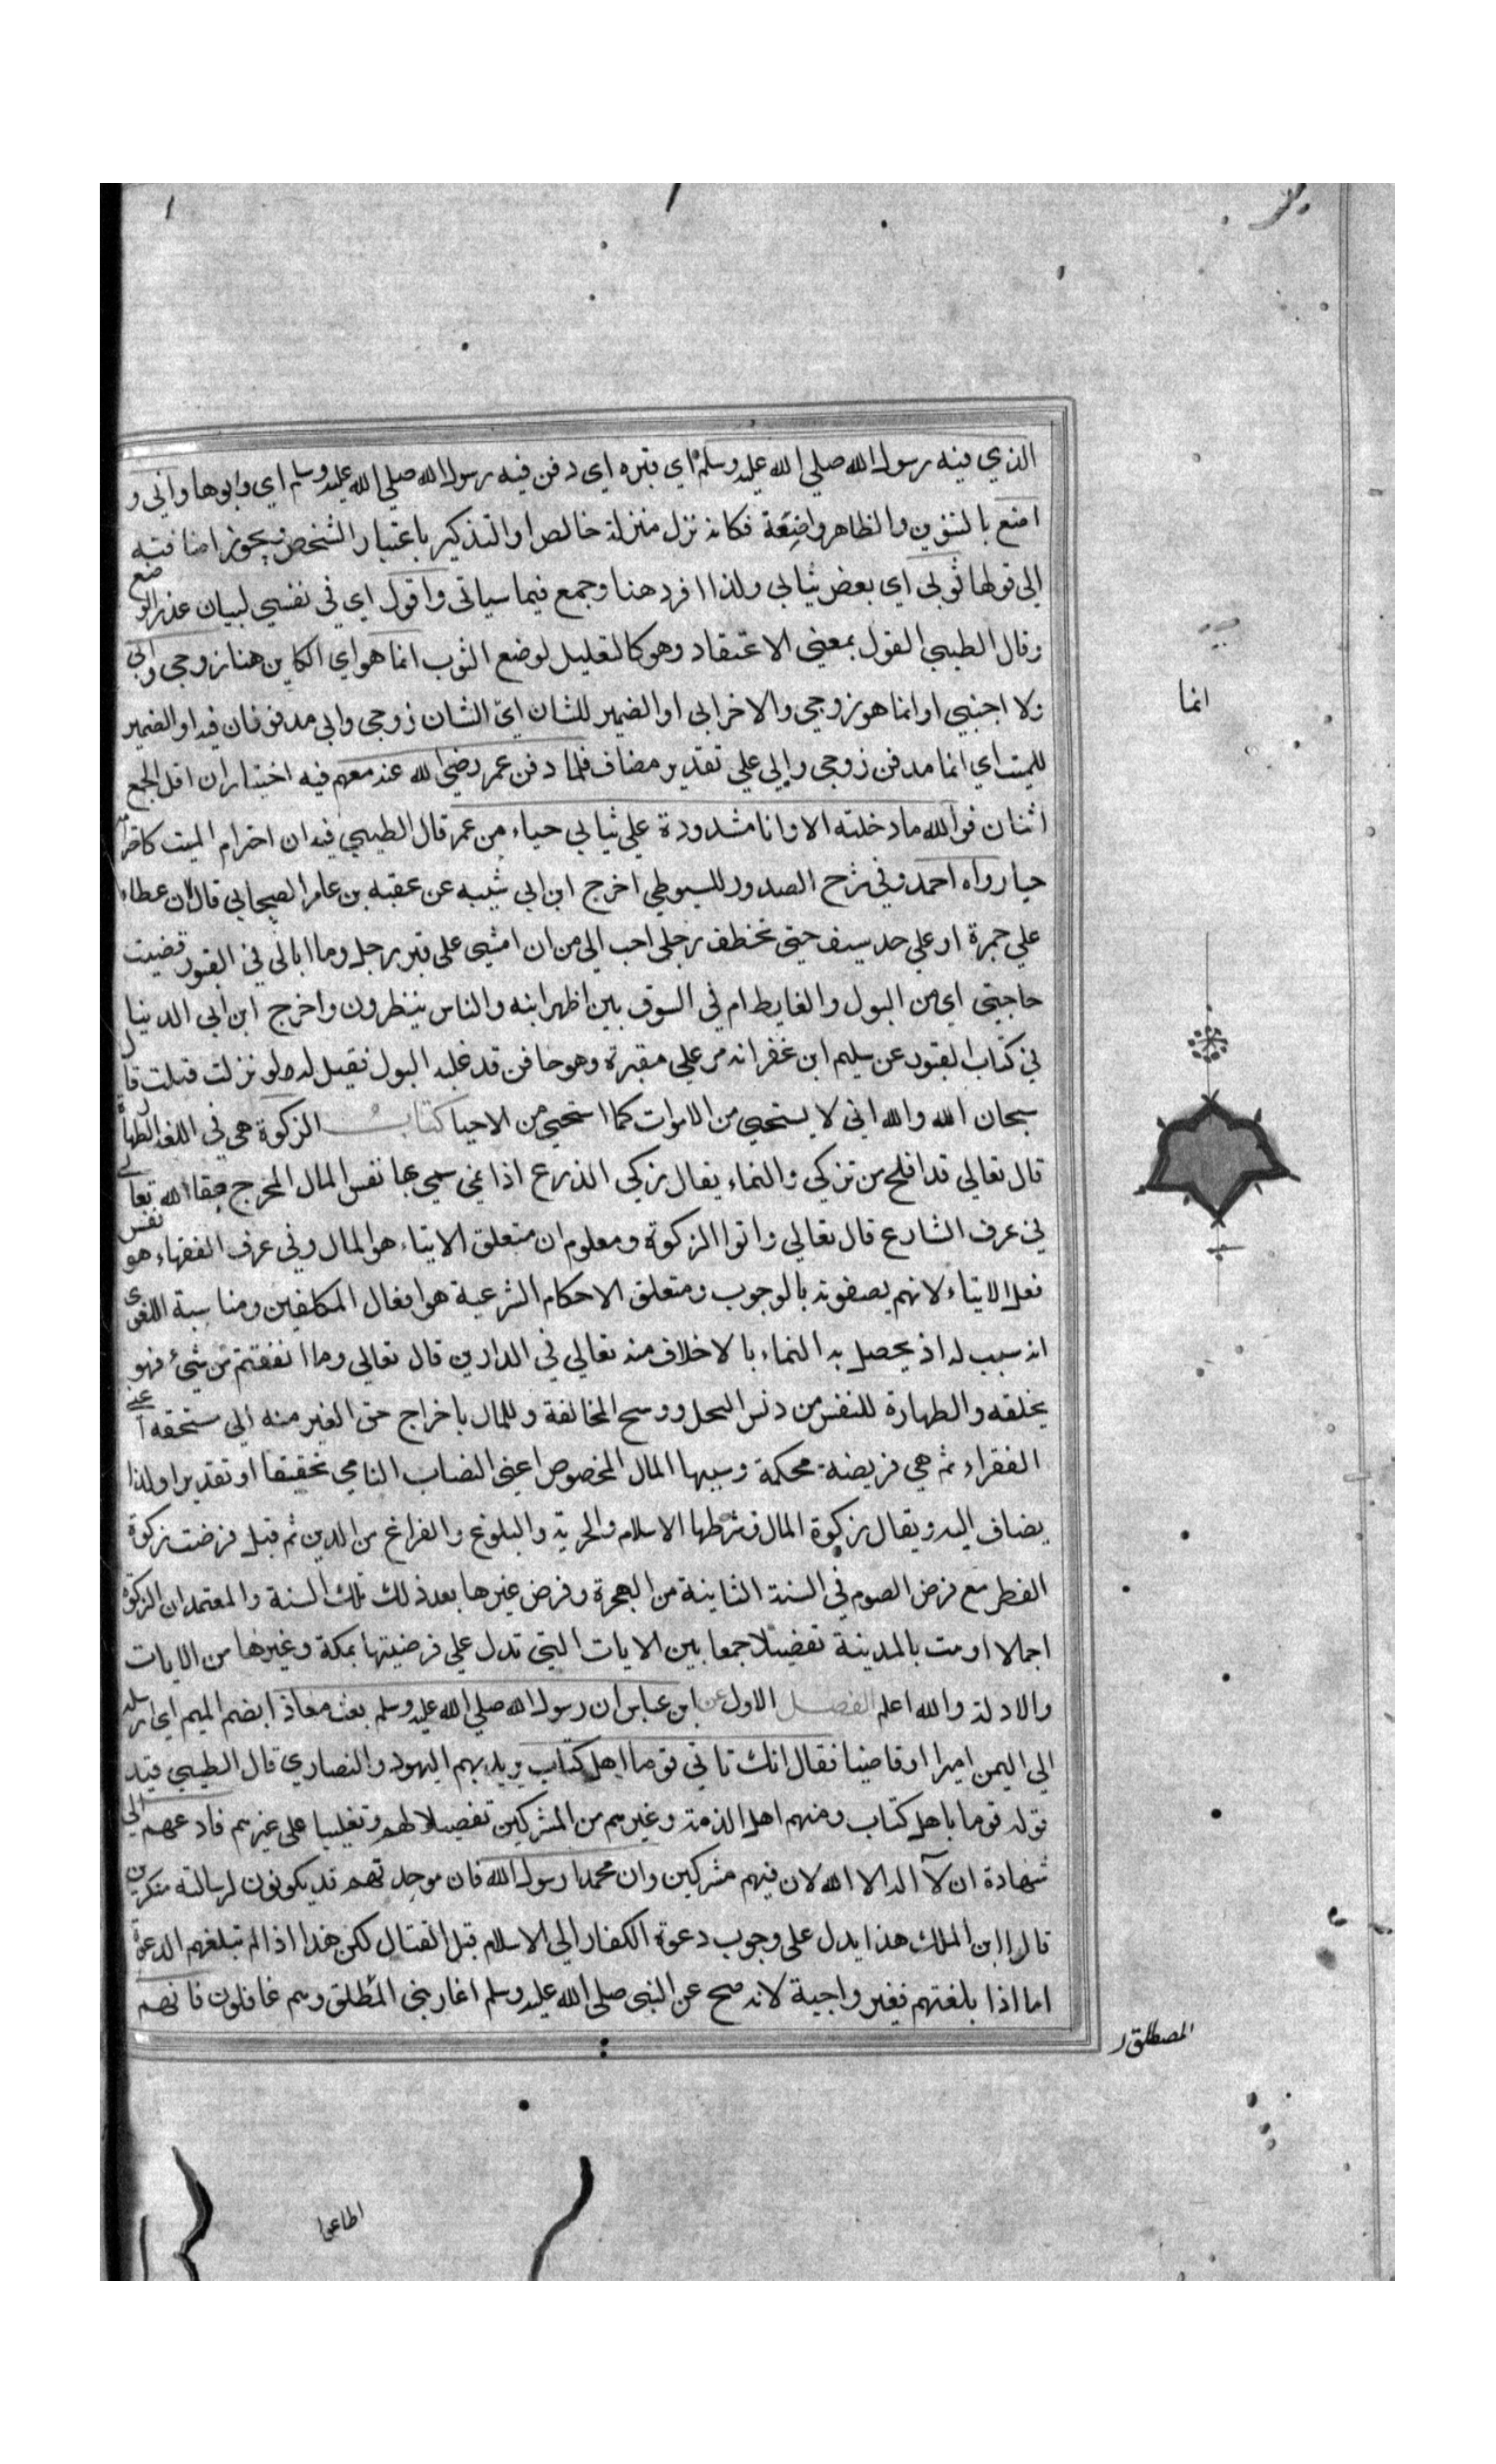 الذي فيه رسول الله صلي الله عليه وسلم اي قبره اي دفن فيه رسول الله صلي الله عليه وسلم اي وابوها واني و
اضع بالتنوين والظاهر واضعة فكانه نزل منزلة خالص او التذكير باعتبار الشخص فيجوز اضافته
الي قولها ثوبي اي بعض ثيابي ولذا افرد هنا وجمع فيما سياتي واقول اي في نفسي لبيان عذر الوضع
وقال الطيبي القول بمعني الاعتقاد وهو كالتعليل لوضع الثوب انما هو اي الكاين هنا زوجي وابي
ولا اجنبي او انما هو زوجي والاخر ابي او الضمير للشان اي الشان زوجي وابي مدفونان فيه او الضمير
للميت اي انما مدفن زوجي وابي علي تقدير مضاف فلما دفن عمر رضي الله عنه معهم فيه اختيار ان اقل الجمع
اثنان فوالله ما دخلته الا وانا مشدودة علي ثيابي حياء من عمر قال الطيبي فيه ان احترام الميت كاحترامه
حيا رواه احمد وفي شرح الصدور للسيوطي اخرج ابن ابي شيبه عن عقبه بن عامر الصحابي قال لان عطاء
علي جمرة او علي حد سيف حتي تخطف رجلي احب الي من ان امشي علي قبر رجل وما ابالي في القبور قضيت
حاجتي اي من البول والغايط ام في السوق بين اظهر ابنه والناس ينظرون واخرج ابن ابي الدنيا
في كتاب القبور عن سليم ابن غفر انه مر علي مقبرة وهو حاقن قد غلبه البول فقيل له لو نزلت فبلت قال
سبحان الله والله اني لا يستحيي من الاموات كما استحيي من الاحيا كتاب الزكوة هي في اللغة الطهارة
قال تعالي قد افلح من تزكي والنماء يقال زكي الذرع اذا نمي سمي بها نفس المال المخرج حقا الله تعالي
في عرف الشارع قال تعالي واتوا الزكوة ومعلوم ان متعلق الايتاء هو المال وفي عرف الفقهاء هو نفس
فعل الايتاء لانهم يصفونه بالوجوب ومتعلق الاحكام الشرعية هو افعال المكلفين ومناسبة اللغوي
انه سبب له اذ يحصل به النماء بالاخلاف منه تعالي في الدارين قال تعالي وما انفقتم من شيء فهو
يخلفه والطهارة للنفس من دنس البخل ووسخ المخالفة وللمال باخراج حق الغير منه الي مستحقه اعني
الفقراء ثم هي فريضة محكمة وسببها المال المخصوص اعني النصاب النامي تحقيقا او تقديرا ولذا
يضاف اليه ويقال زكوة المال وشرطها الاسلام والحرية والبلوغ والفراغ من الدين ثم قيل فرضت زكوة
الفطر مع فرض الصوم في السنة الثانية من الهجرة وفرض غيرها بعد ذلك تلك السنة والمعتمد ان الزكوة
اجمالا اومت بالمدينة تفضيلا جمعا بين الايات التي تدل علي فرضيتها بمكة وغيرها من الايات
والادلة والله اعلم الفصل الاول عن ابن عباس ان رسول الله صلي الله عليه وسلم بعث معاذا بضم الميم اي ارسله
الي اليمن اميرا او قاضيا فقال انك تاتي قوما اهل كتاب ويريد بهم اليهود والنصاري قال الطيبي قيد
قوله قوما باهل كتاب ومنهم اهل الذمة وغيرهم من المشركين تفضيلا لهم وتغليبا علي غيرهم فادعهم الي
شهادة ان لا اله الا الله لان فيهم مشركين وان محمدا رسول الله فان موحدتهم قد يكونون لرسالته منكرين
قال ابن الملك هذا يدل علي وجوب دعوة الكفار الي الاسلام قبل القتال لكن هذا اذا لم تبلغهم الدعوة
اما اذا بلغتهم فغير واجبة لانه صح عن النبي صلي الله عليه وسلم اغار بني المطلق وهم غافلون فانهم
انما
المصطلق
اطاعوا